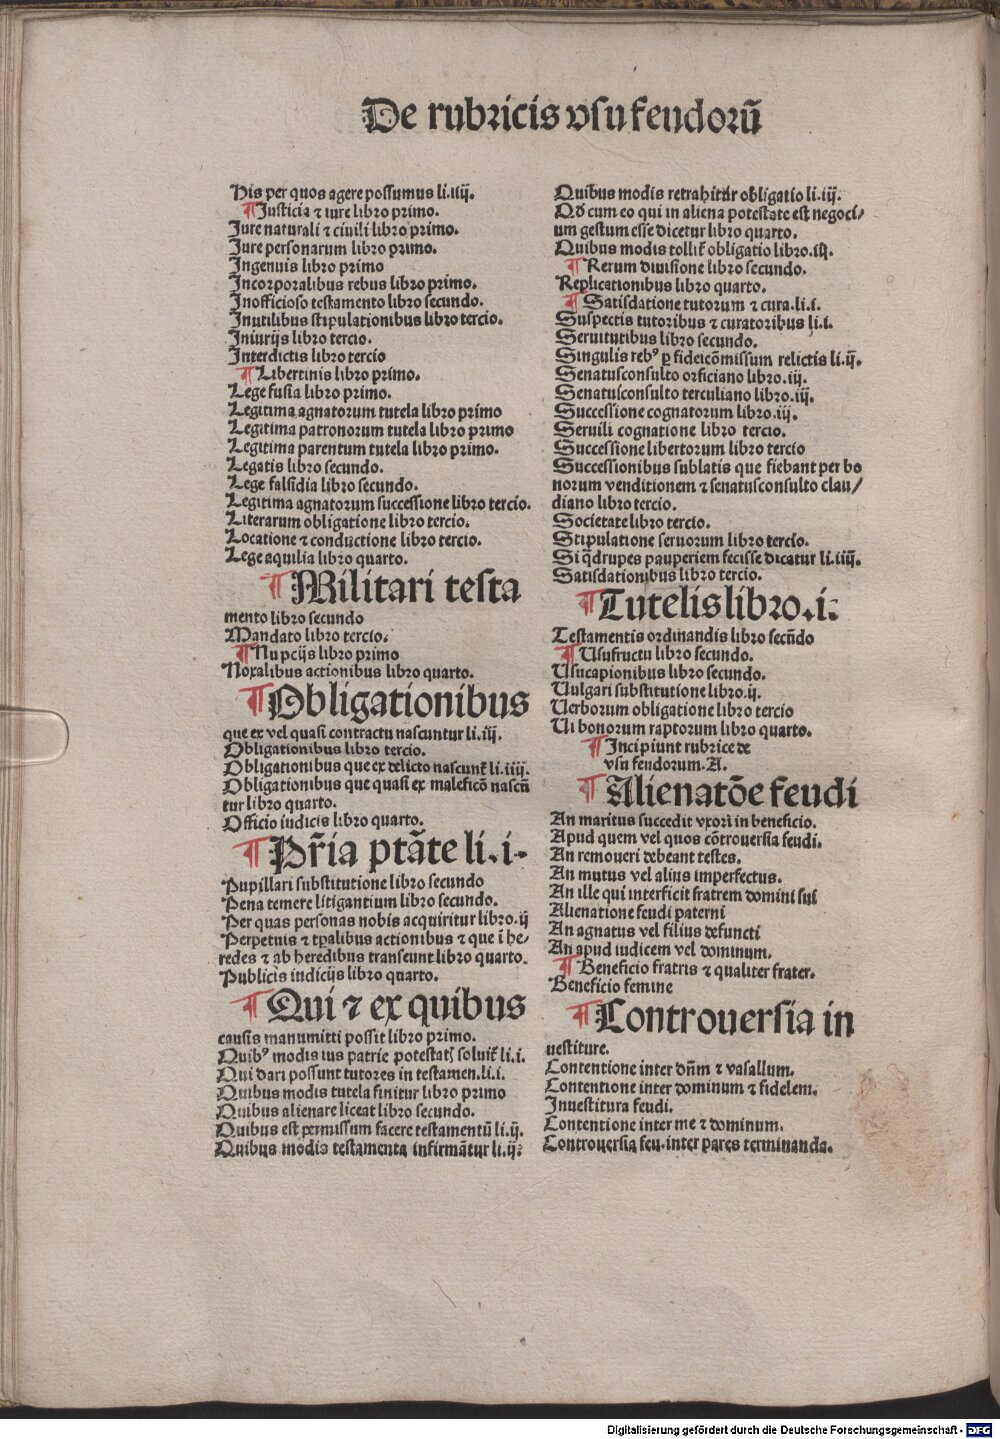 De rubricis vsu feudorū
His per quos agere possumus li.iiij.
¶ Justicia ⁊ iure libro primo.
Jure naturali ⁊ ciuili libro primo.
Jure personarum libro primo.
Ingenuis libro primo
Incorporalibus rebus libro primo.
Inofficioso testamento libro secundo.
Inutilibus stipulationibus libro tercio.
Iniurijs libro tercio.
Interdictis libro tercio
¶ Libertinis libro primo.
Lege fusia libro primo.
Legitima agnatorum tutela libro primo
Legitima patronorum tutela libro primo
Legitima parentum tutela libro primo.
Legatis libro secundo.
Lege falsidia libro secundo.
Legitima agnatorum successione libro tercio.
Literarum obligatione libro tercio.
Locatione ⁊ conductione libro tercio.
Lege aquilia libro quarto.
¶ Militari testa
mento libro secundo
Mandato libro tercio.
¶ Nupcijs libro primo
Noxalibus actionibus libro quarto.
¶ Obligationibus
que ex vel quasi contractu nascuntur li.iij.
Obligationibus libro tercio.
Obligationibus que ex delicto nascunt̄ li.iiij.
Obligationibus que quasi ex maleficō nascū
tur libro quarto.
Officio iudicis libro quarto.
¶ Pr̄ia ptāte li.i.
Pupillari substitutione libro secundo
Pena temere litigantium libro secundo.
Per quas personas nobis acquiritur libro.ij
Perpetuis ⁊ tpalibus actionibus ⁊ que ī he/
redes ⁊ ab heredibus transeunt libro quarto.
Publicis iudicijs libro quarto.
¶ Qui ⁊ ex quibus
causis manumitti possit libro primo.
Quibꝰ modis ius patrie potestatꝭ soluit̄ li.i.
Qui dari possunt tutores in testamen.li.i.
Quibus modis tutela finitur libro primo
Quibus alienare liceat libro secundo.
Quibus est permissum facere testamentū li.ij.
Quibus modis testamenta infirmātur li.ij.
Quibus modis retrahitur obligatio li.iij.
Qd̄ cum eo qui in aliena potestate est negoci/
um gestum esse dicetur libro quarto.
Quibus modis tollit̄ obligatio libro.iij.
¶ Rerum diuisione libro secundo.
Replicationibus libro quarto.
¶ Satisdatione tutorum ⁊ cura.li.i.
Suspectis tutoribus ⁊ curatoribus li.i.
Seruitutibus libro secundo.
Singulis rebꝰ ꝑ fideicōmissum relictis li.ij.
Senatusconsulto orficiano libro.iij.
Senatusconsulto terculiano libro.iij.
Successione cognatorum libro.iij.
Seruili cognatione libro tercio.
Successione libertorum libro tercio
Successionibus sublatis que fiebant per bo
norum venditionem ⁊ senatusconsulto clau/
diano libro tercio.
Societate libro tercio.
Stipulatione seruorum libro tercio.
Si q̄drupes pauperiem fecisse dicatur li.iiij.
Satisdationibus libro tercio.
¶ Tutelis libro.i.
Testamentis ordinandis libro secūdo
¶ Usufructu libro secundo.
Usucapionibus libro secundo.
Uulgari substitutione libro.ij.
Uerborum obligatione libro tercio
Ui bonorum raptorum libro quarto.
¶ Incipiunt rubrice de
vsu feudorum.A.
¶ Alienatōe feudi
An maritus succedit vxori in beneficio.
Apud quem vel quos cōtrouersia feudi.
An remoueri debeant testes.
An mutus vel alius imperfectus.
An ille qui interficit fratrem domini sui
Alienatione feudi paterni
An agnatus vel filius defuncti
An apud iudicem vel dominum.
¶ Beneficio fratris ⁊ qualiter frater.
Beneficio femine
¶ Controuersia in
uestiture.
Contentione inter dn̄m ⁊ vasallum.
Contentione inter dominum ⁊ fidelem.
Inuestitura feudi.
Contentione inter me ⁊ dominum.
Controuersia feu.inter pares terminanda.
Digitalisierung gefördert durch die Deutsche Forschungsgemeinschaft - DFG